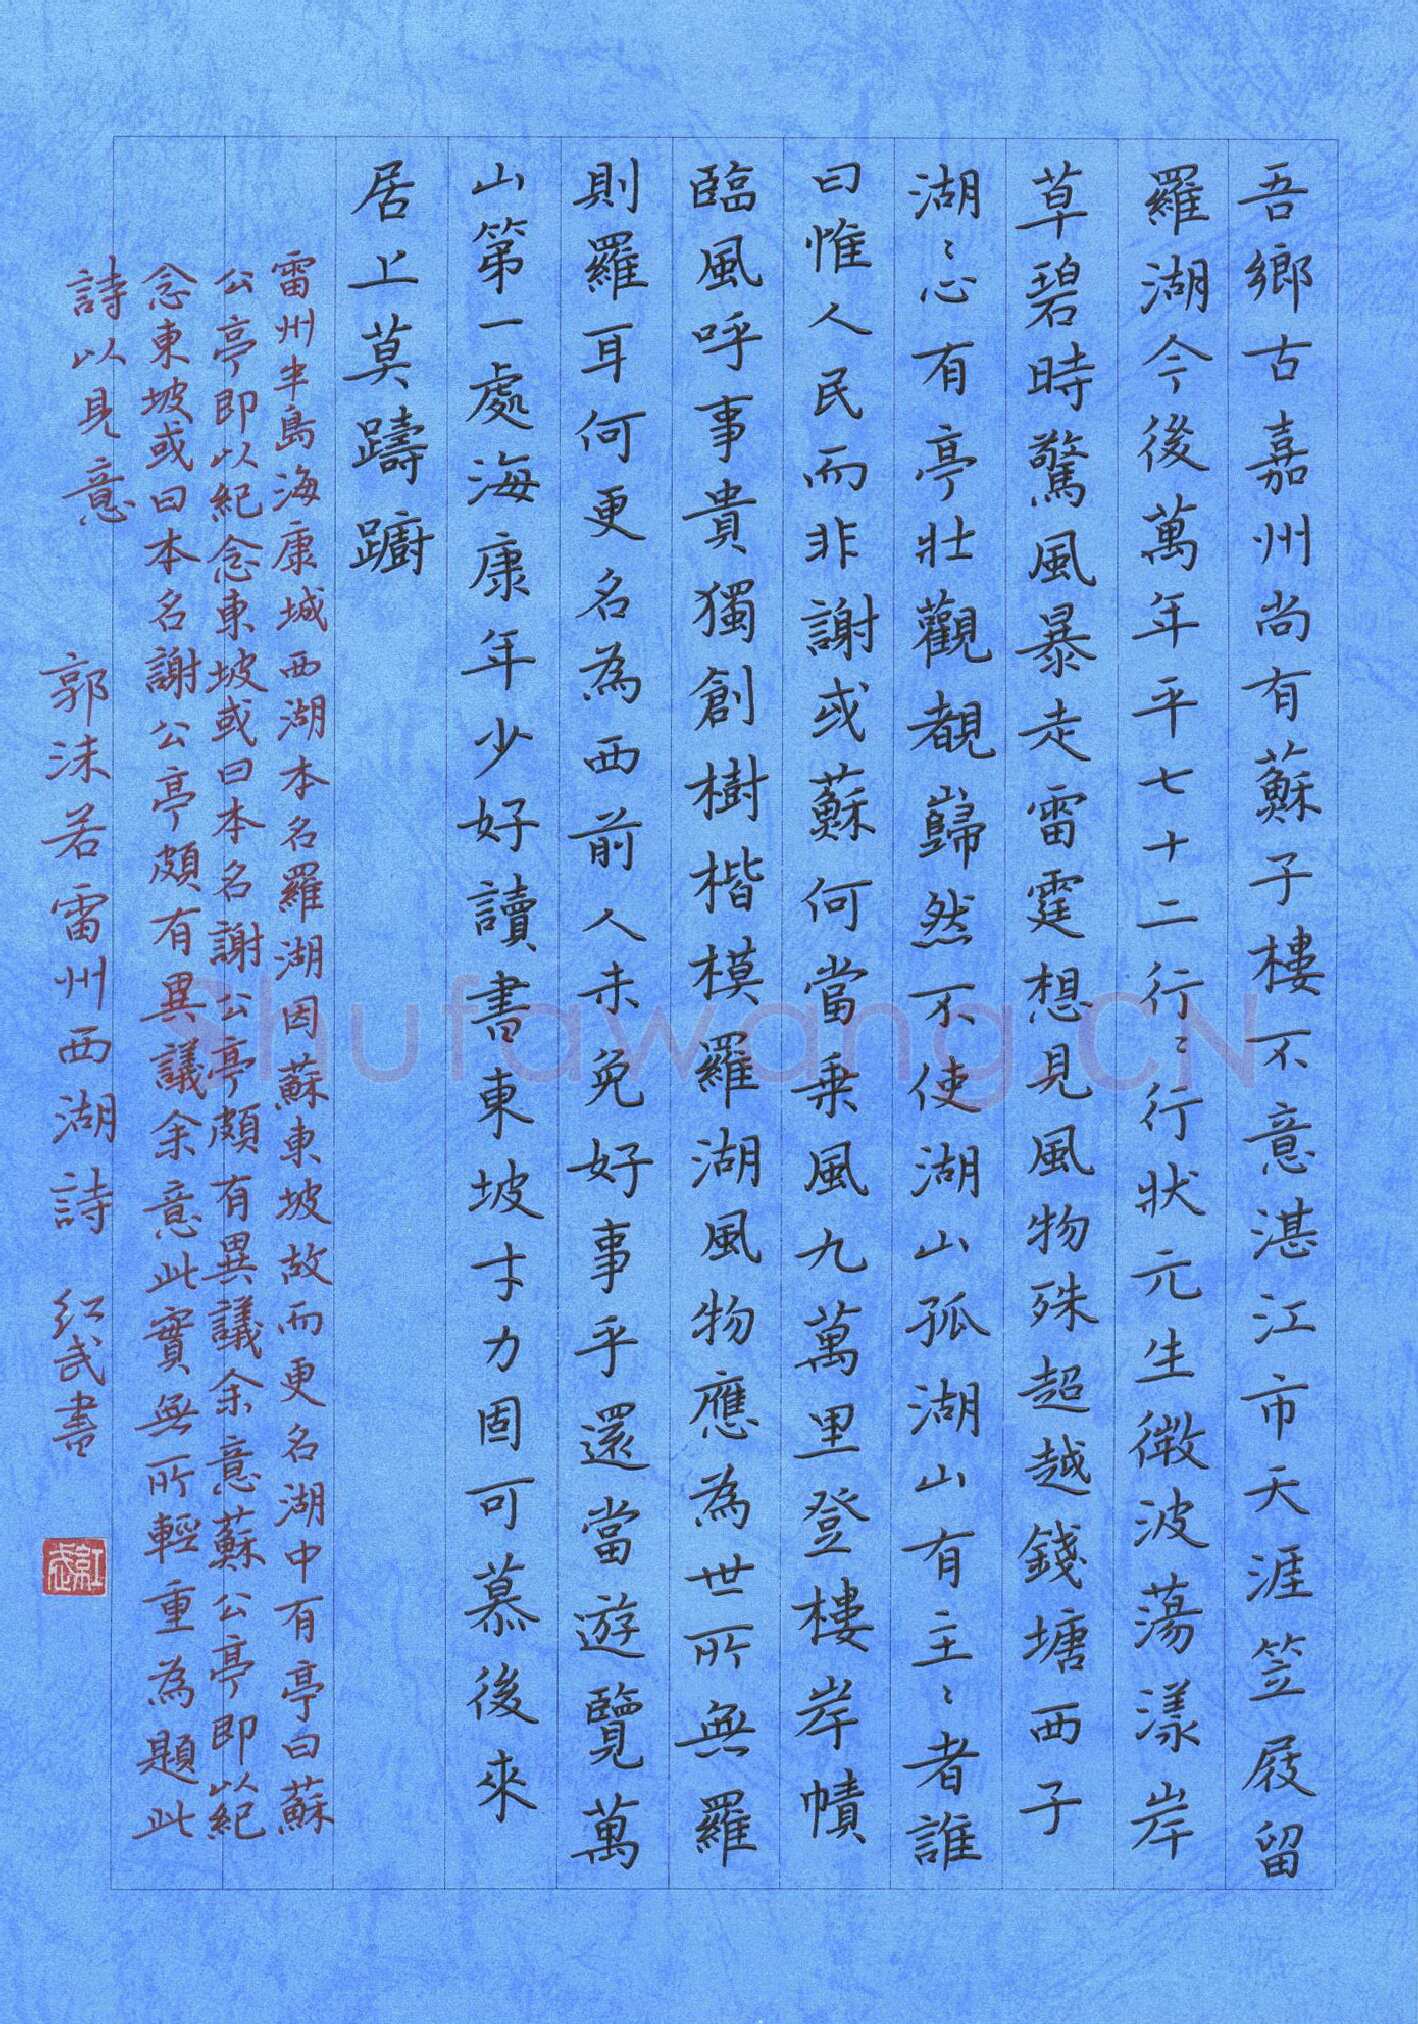 吾鄉古嘉州尚有蘇子樓不意湛江市天涯笠屐留
羅湖今後萬年平七十二行〻行狀元生微波蕩漾岸
草碧時驚風暴走雷霆想見風物殊超越錢塘西子
湖〻心有亭壯觀覩巋然不使湖山孤湖山有主〻者誰
曰惟人民而非謝或蘇何當乘風九萬里登樓岸幘
臨風呼事貴獨創樹楷模羅湖風物應為世所無羅
則羅耳何更名為西前人未免好事乎還當遊覽萬
山第一處海康年少好讀書東坡才力固可慕後來
居上莫躊躕
雷州半島海康城西湖本名羅湖因蘇東坡故而更名湖中有亭曰蘇
公亭即以紀念東坡或曰本名謝公亭頗有異議余意蘇公亭即以紀
念東坡或曰本名謝公亭頗有異議余意此實無所輕重為題此
詩以見意
郭沫若雷州西湖詩 紅武書
紅武
Shufawang.CN